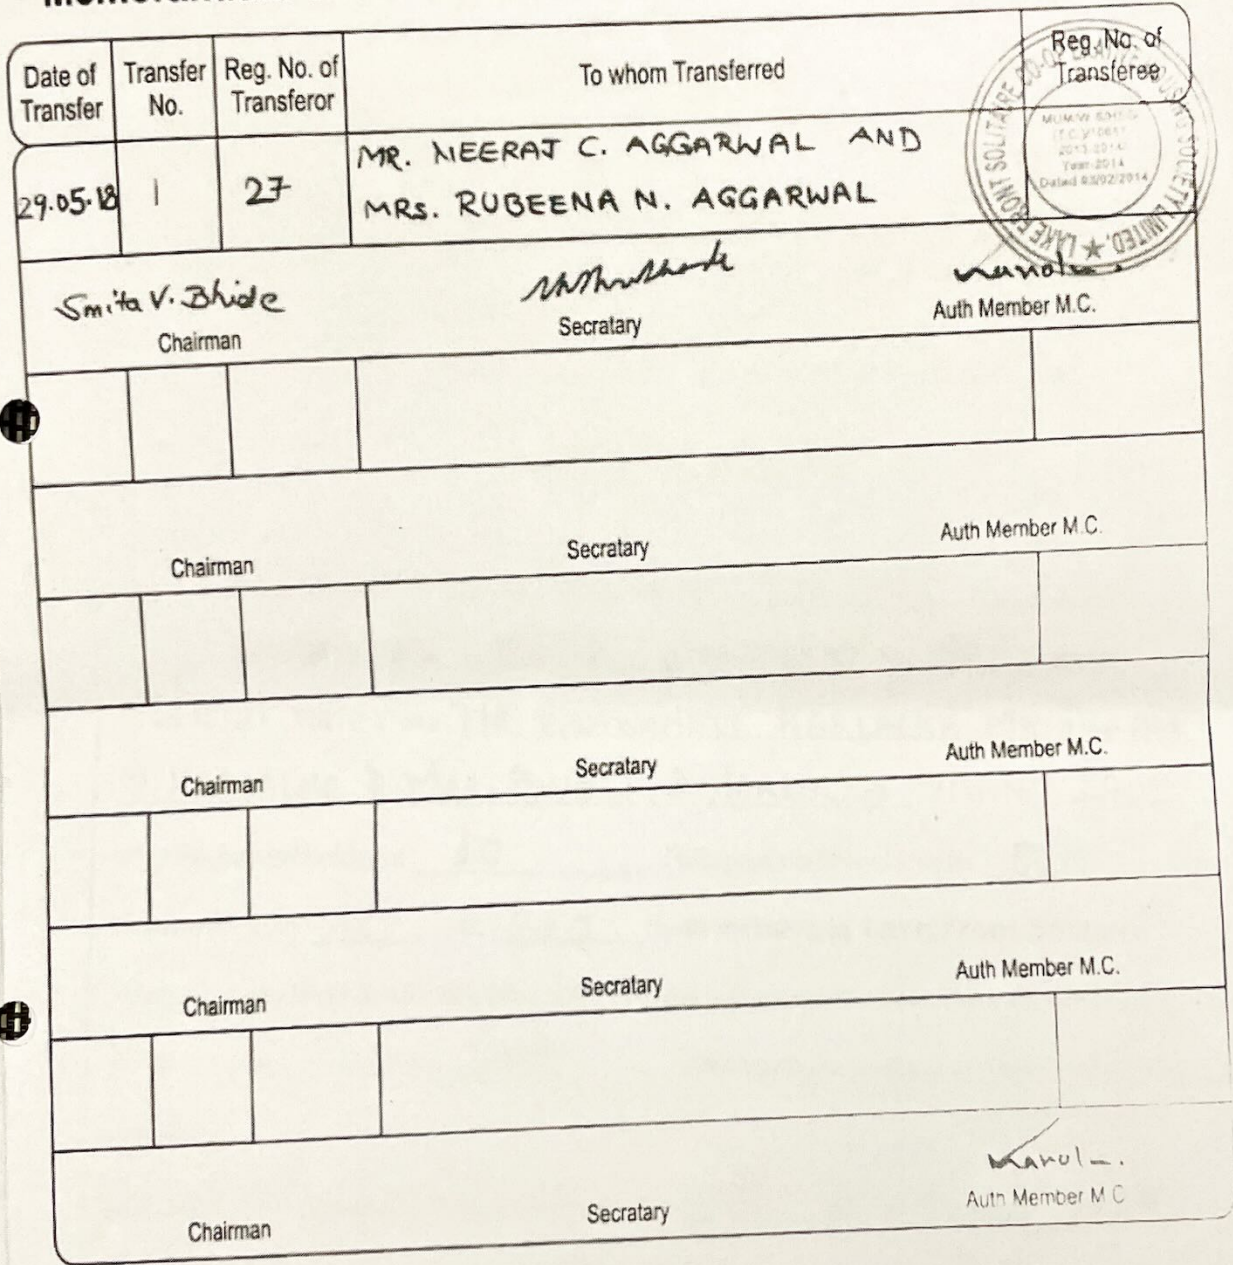 Date of Transfer
Transfer No.
Reg. No. of Transferor
To whom Transferred
Reg. No. of Transferee
29.05.18
1
27
MR. NEERAJ C. AGGARWAL AND
MRS. RUBEENA N. AGGARWAL
LAKE FRONT SOLITAIRE CO-OP HOUSING SOCIETY LIMITED.
2013-2014
Year-2014
Dated 03/02/2014
Smita V. Bhide
Chairman
Secratary
Auth Member M.C.
Chairman
Secratary
Auth Member M.C.
Chairman
Secratary
Auth Member M.C.
Chairman
Secratary
Auth Member M.C.
Chairman
Secratary
Auth Member M C